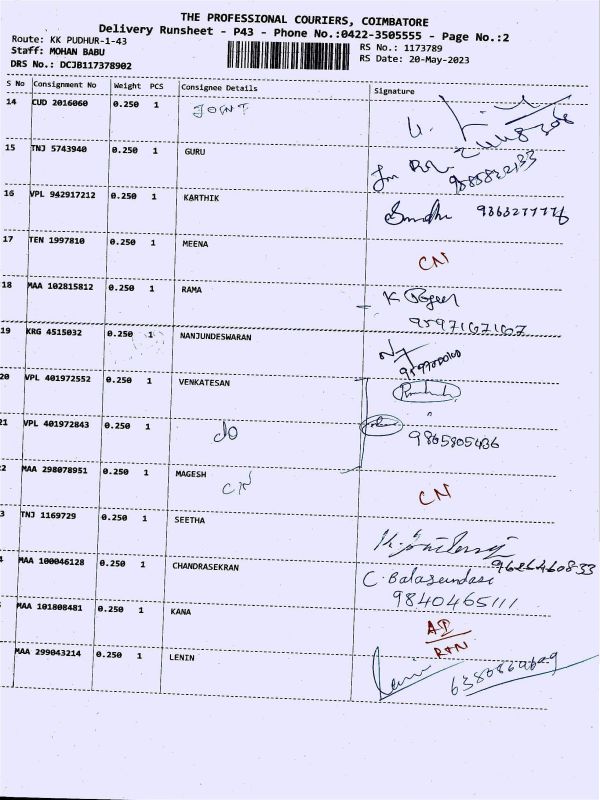 THE PROFESSIONAL COURIERS, COIMBATORE
Delivery Runsheet - P43 - Phone No.:0422-3505555 - Page No.:2
Route: KK PUDHUR-1-43 RS No.: 1173789
Staff: MOHAN BABU RS Date: 20-May-2023
DRS No.: DCJB117378902
S No Consignment No Weight PCS Consignee Details Signature
14 CUD 2016060 0.250 1 JOINT
15 TNJ 5743940 0.250 1 GURU
16 VPL 942917212 0.250 1 KARTHIK
17 TEN 1997810 0.250 1 MEENA CN
18 MAA 102815812 0.250 1 RAMA K
9597167167
19 KRG 4515032 0.250 1 NANJUNDESWARAN
20 VPL 401972552 0.250 1 VENKATESAN
21 VPL 401972843 0.250 1 do 9865805436
2 MAA 298078951 0.250 1 MAGESH CN CN
3 TNJ 1169729 0.250 1 SEETHA
4 MAA 100046128 0.250 1 CHANDRASEKRAN C. Balasundari
9840465111
MAA 101808481 0.250 1 KANA AD
RTN
MAA 299043214 0.250 1 LENIN Lenin